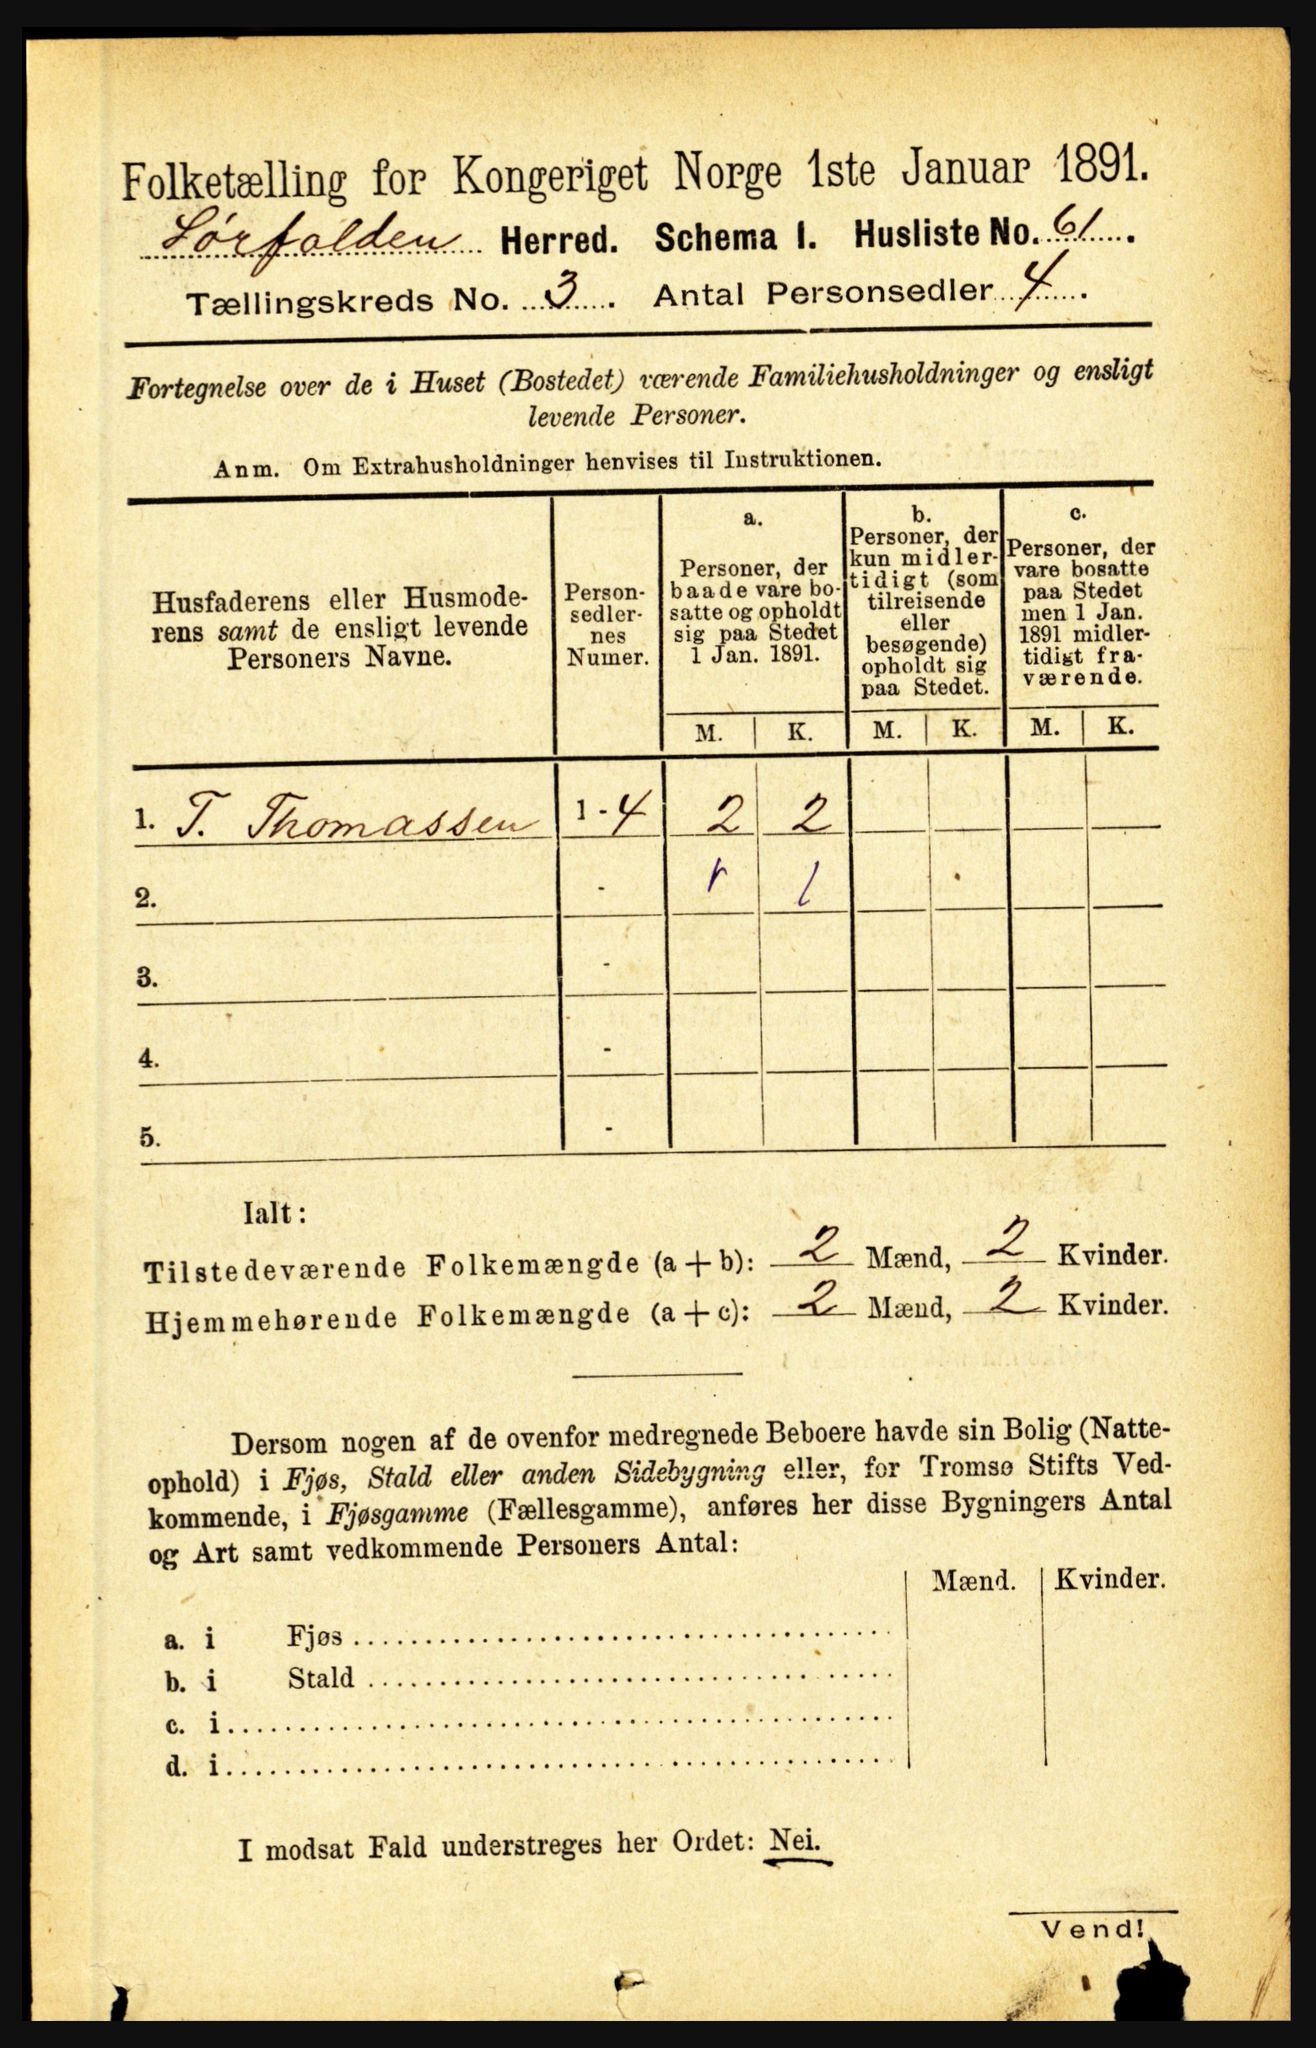 Folketælling for Kongeriget Norge 1ste Januar 1891.
Sørfolden Herred. Schema I. Husliste No. 61.
Tællingskreds No. 3. Antal Personsedler 4.
Fortegnelse over de i Huset (Bostedet) værende Familiehusholdninger og ensligt
levende Personer.
Anm. Om Extrahusholdninger henvises til Instruktionen.
Husfaderens eller Husmode-
rens samt de ensligt levende
Personers Navne.
Person-
sedler-
nes
Numer.
a.
Personer, der
baade vare bo-
satte og opholdt
sig paa Stedet
1 Jan. 1891.
b.
Personer, der
kun midler-
tidigt (som
tilreisende
eller
besøgende)
opholdt sig
paa Stedet.
c.
Personer, der
vare bosatte
paa Stedet
men 1 Jan.
1891 midler-
tidigt fra-
værende.
M. K. M. K. M. K.
1. T. Thomassen 1 - 4 2 2
2. - 1
3. -
4. -
5. -
Ialt:
Tilstedeværende Folkemængde (a + b): 2 Mænd, 2 Kvinder.
Hjemmehørende Folkemængde (a + c): 2 Mænd, 2 Kvinder.
Dersom nogen af de ovenfor medregnede Beboere havde sin Bolig (Natte-
ophold) i Fjøs, Stald eller anden Sidebygning eller, for Tromsø Stifts Ved-
kommende, i Fjøsgamme (Fællesgamme), anføres her disse Bygningers Antal
og Art samt vedkommende Personers Antal:
Mænd. Kvinder.
a. i Fjøs
b. i Stald
c. i
d. i
I modsat Fald understreges her Ordet: Nei.
Vend!